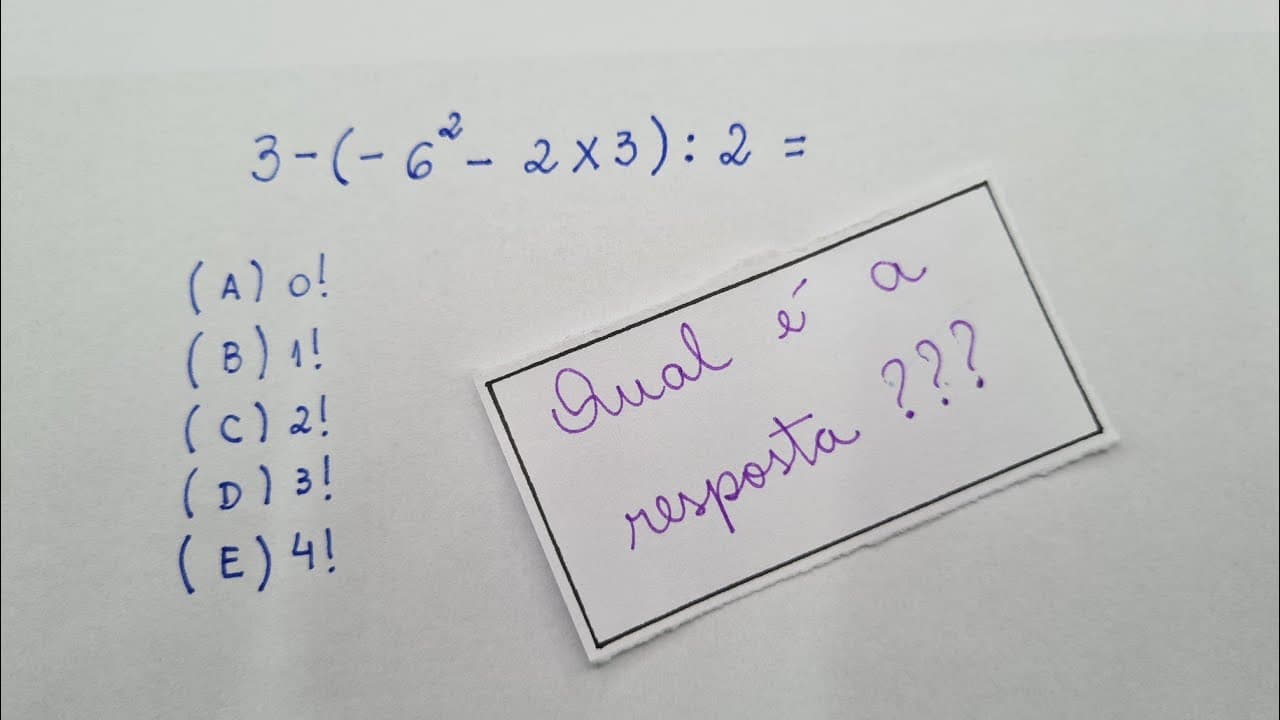 3-(-6²-2×3):2=
(A) 0!
(B) 1!
(C) 2!
(D) 3!
(E) 4!
Qual é a
resposta ???